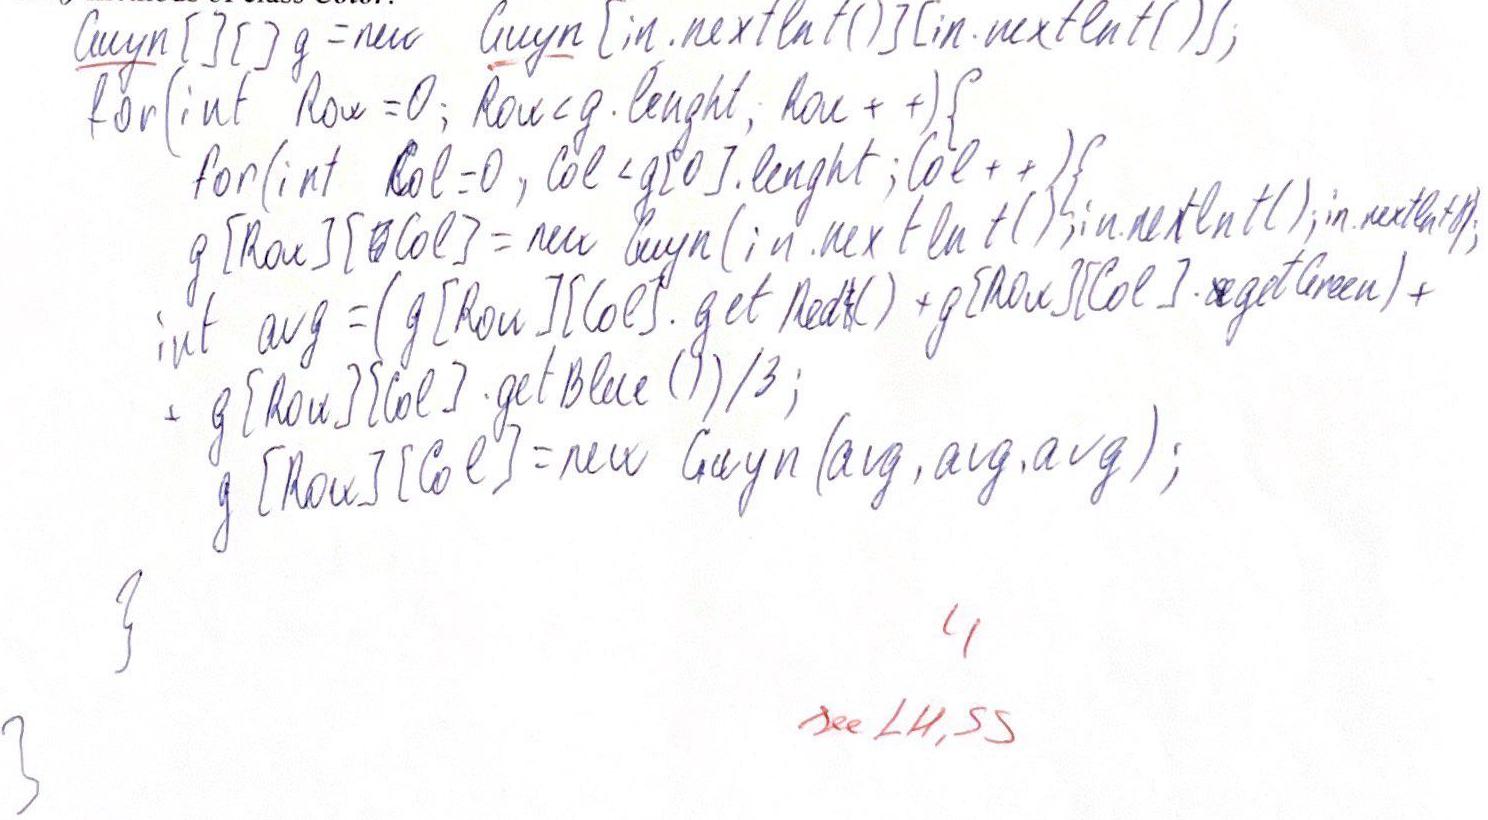 methods of class Color.
Gwyn[][] g = new Gwyn[in.nextInt()][in.nextInt()];
for(int Row=0; Row<g.lenght; Row++){
for(int Col=0, Col<g[0].lenght; Col++){
g[Row][Col]=new Gwyn(in.nextInt();in.nextInt();in.nextInt());
int avg=(g[Row][Col].getRed()+g[Row][Col].getGreen)+
+ g[Row][Col].getBlue())/3;
g[Row][Col]=new Gwyn(avg,avg,avg);
}
4
see LH, SS
}